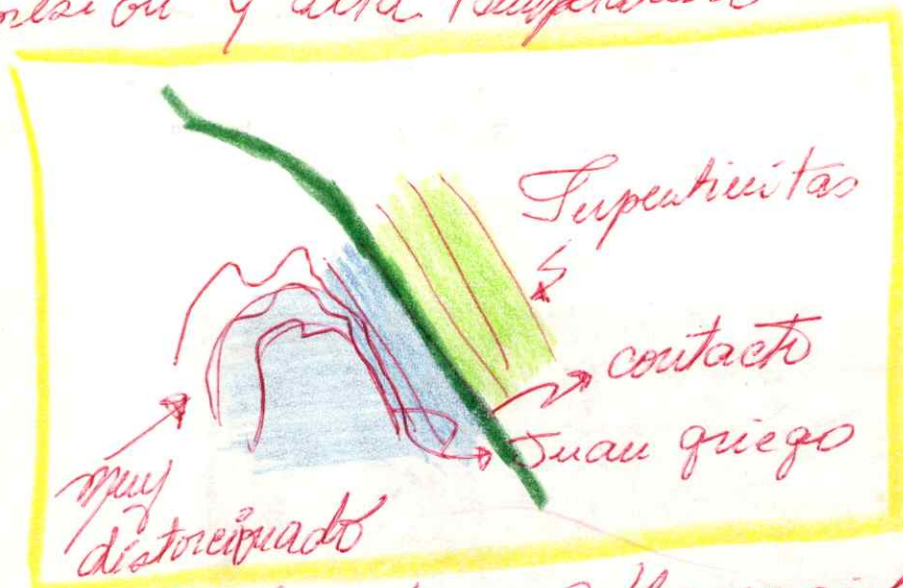 y alta
Serpentinitas
contacto
Juan griego
muy
distorcionado